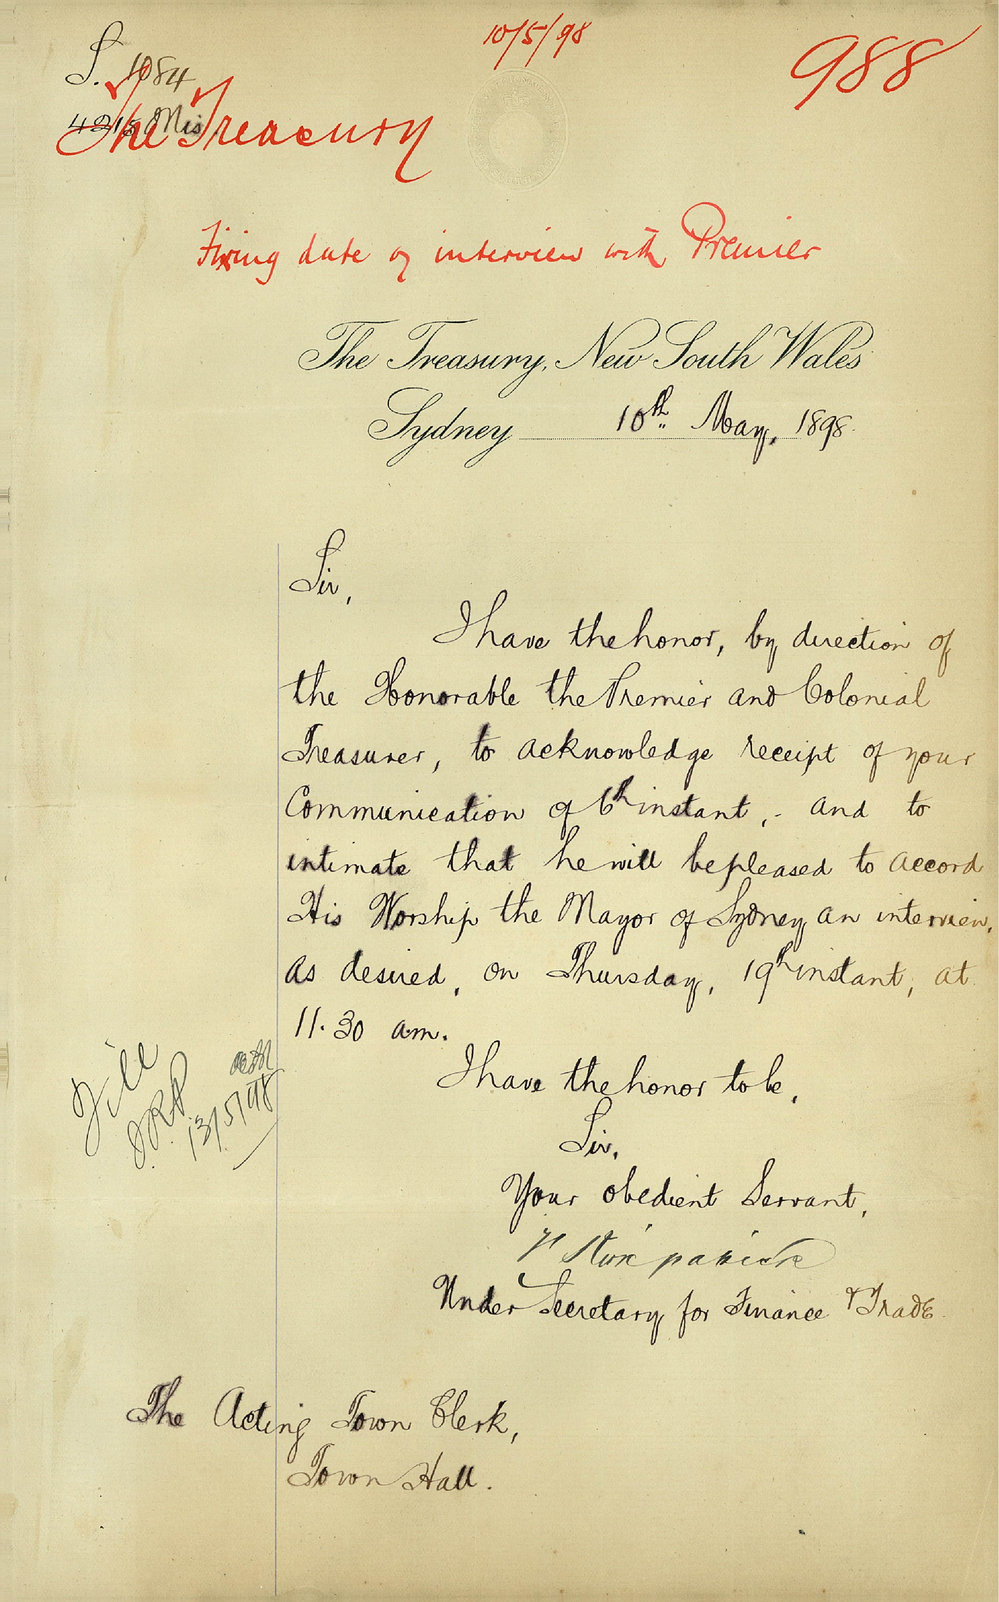 10/5/98
988
S. 1084
4215 Mis
The Treasury
Fixing date of interview with Premier
The Treasury, New South Wales
Sydney 10th May, 1898.
Sir,
I have the honor, by direction of
the Honorable the Premier and Colonial
Treasurer, to acknowledge receipt of your
Communication of 6th instant, - and to
intimate that he will be pleased to accord
His Worship the Mayor of Sydney an interview,
as desired, on Thursday, 19th instant, at
11.30 am.
I have the honor to be,
Sir,
Your obedient Servant,
Kirkpatrick
Under Secretary for Finance & Trade.
File
13/5/98
The Acting Town Clerk,
Town Hall.